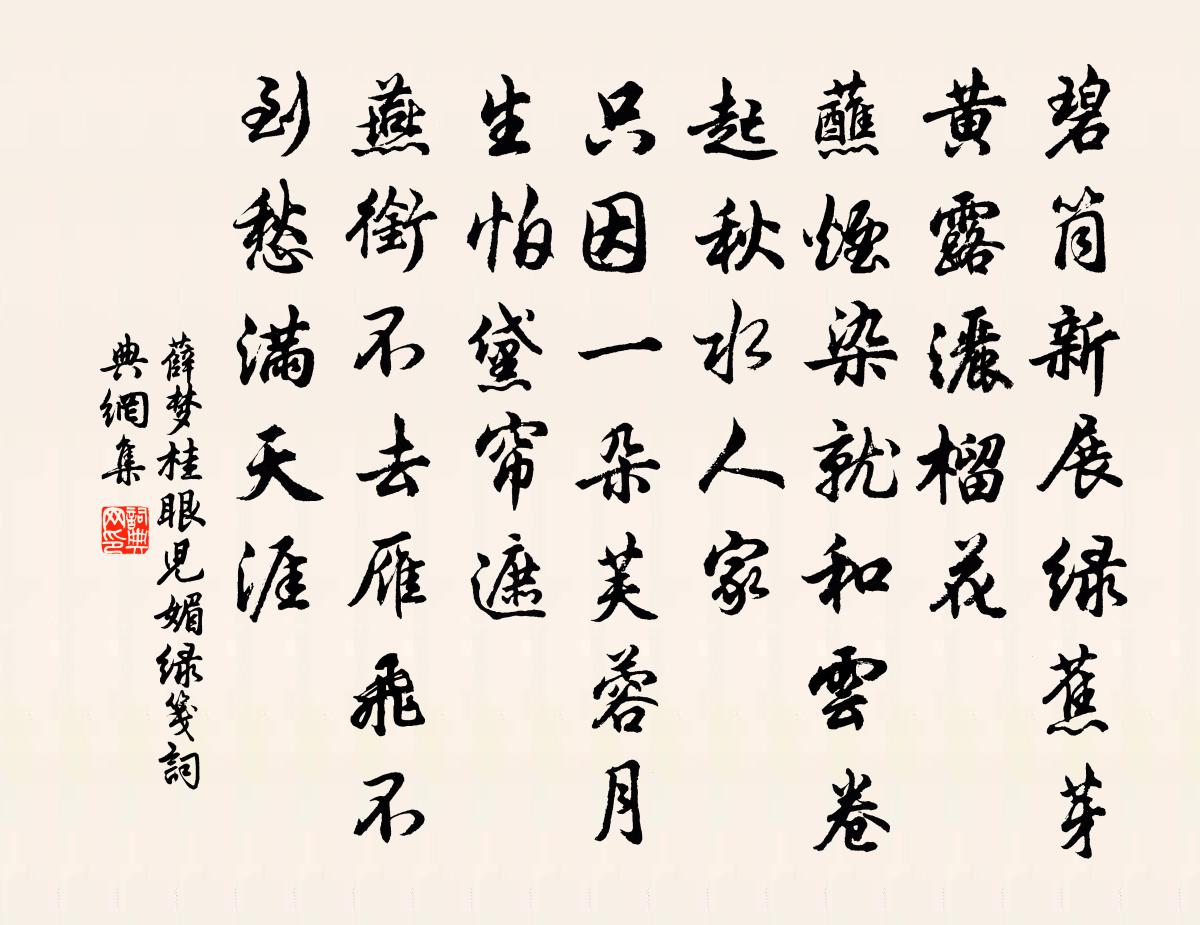 碧筒新展绿蕉芽
黄露灑榴花
蘸煙染就和雲卷
起秋水人家
只因一朵芙蓉月
生怕黛帘遮
燕銜不去雁飛不
到愁滿天涯
薛梦桂眼児媚绿箋詞
典網集
詞典
网印